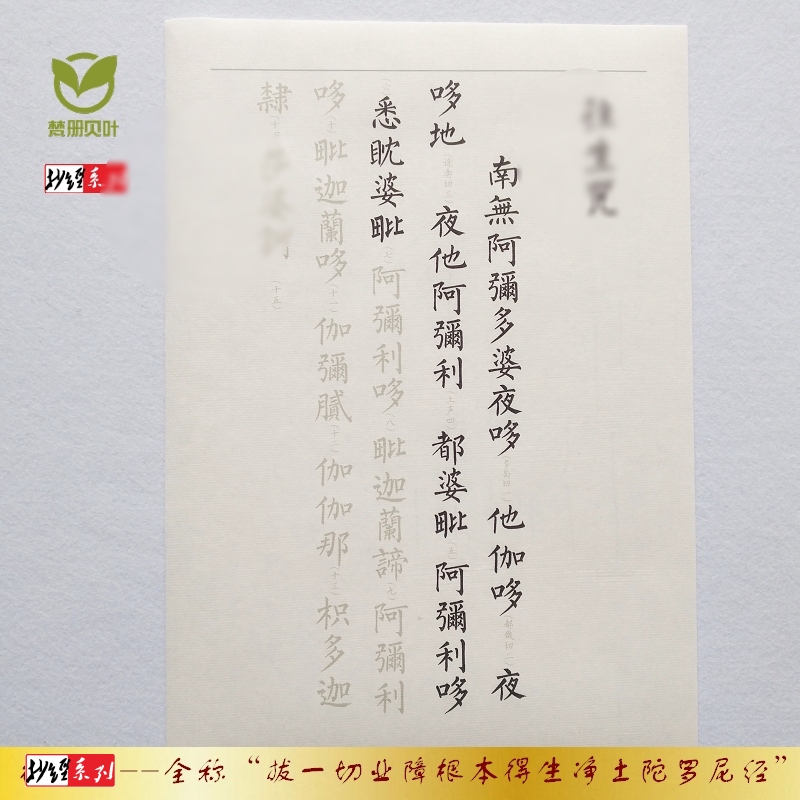 梵册贝叶
抄经系
南無阿彌多婆夜哆 他伽哆(都餓切二) 夜
哆地 夜他阿彌利(上声四) 都婆毗(五) 阿彌利哆
悉眈婆毗 阿彌利哆(八) 毗迦蘭諦 阿彌利
哆(十) 毗迦蘭哆(十一) 伽彌膩(十二) 伽伽那(十三) 枳多迦
隸(十四) (十五)
抄经系列--全称“拔一切业障根本得生净土陀罗尼经”